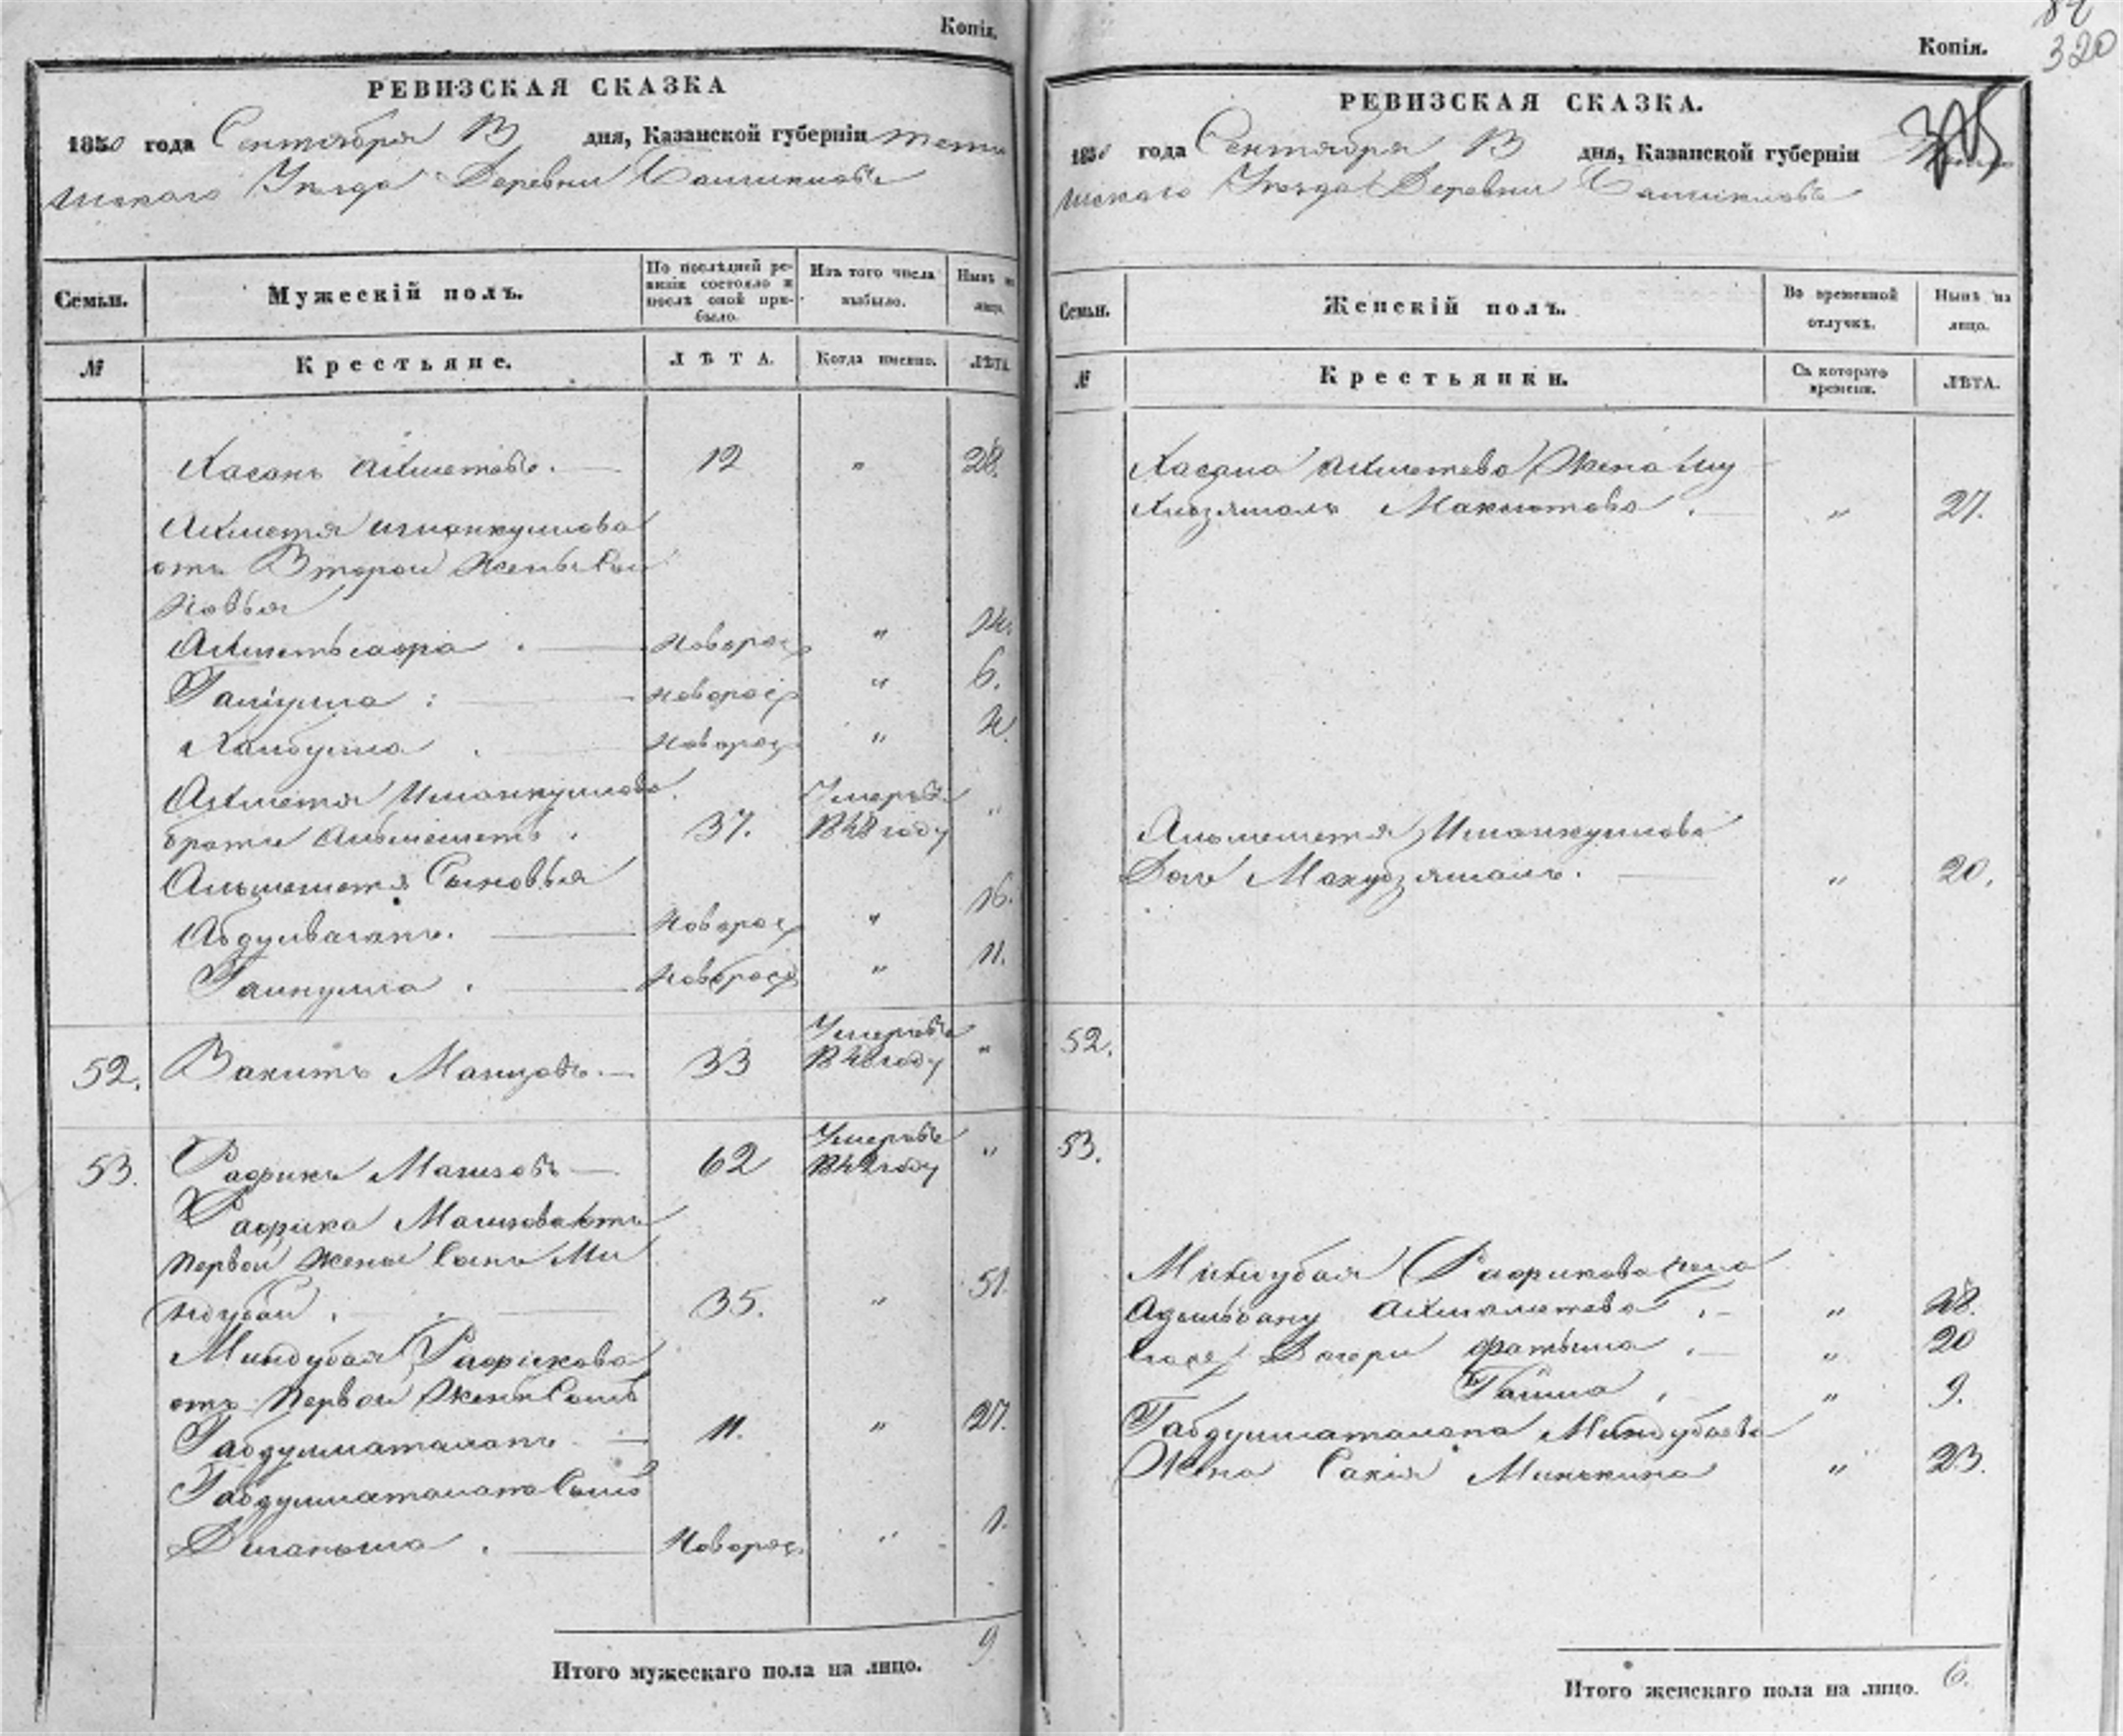 Копія.
РЕВИЗСКАЯ СКАЗКА
1850 года Сентября 13 дня, Казанской губерніи Тетю
шскаго Уѣзда Деревни
Семьи.
Мужескій полъ.
По послѣдней ре-
визіи состояло и
послѣ оной при-
было.
Изъ того числа
выбыло.
Нынѣ на
лицо.
№
Крестьяне.
ЛѢТА.
Когда именно.
ЛѢТА.
Хасанъ Ахметовъ. 12 " 28.
Ахметя Иманкулова
отъ Второй жены Сы
новья
Ахметьсафа . Новорож " 14.
: Новорож " 6.
Хабибулла . Новорож " 4.
Ахметя Иманкулова Умеръ въ
братъ Альмешетъ . 37. 1848 году "
Альмешетя Сыновья
Абдулваганъ. Новорож " 16.
Гайнулла . Новорож " 11.
52. Вакитъ 33 Умеръ въ 1840 году "
53. Рафикъ Мазитовъ 62 Умеръ въ 1842 году "
Рафика Мазитова отъ
первой жены Сынъ Ми
ндубай . 35. " 51.
Миндубая Рафикова
отъ первой жены Сынъ
Габдулматалапъ 11. " 27.
Габдулматалапа Сынъ
. Новорож. " 1.
Итого мужескаго пола на лицо. 9
84
320
Копія.
305
РЕВИЗСКАЯ СКАЗКА.
1850 года Сентября 13 дня, Казанской губерніи Тетю
шскаго Уѣзда Деревни
Семьи.
Женскій полъ.
Во временной
отлучкѣ.
Нынѣ на
лицо.
№
Крестьянки.
Съ котораго
времени.
ЛѢТА.
Хасана Ахметова Жена Би
Махмутова . " 27.
Альмешетя Иманкулова
Дочь Махубзямалъ. " 20.
52.
53.
Миндубая Рафикова жена
Адельбану Ахмаметева . " 48.
Его Дочери Фатыма . " 20
. " 9.
Габдулматалапа Миндубаева
Жена Сакія " 23.
Итого женскаго пола на лицо. 6.